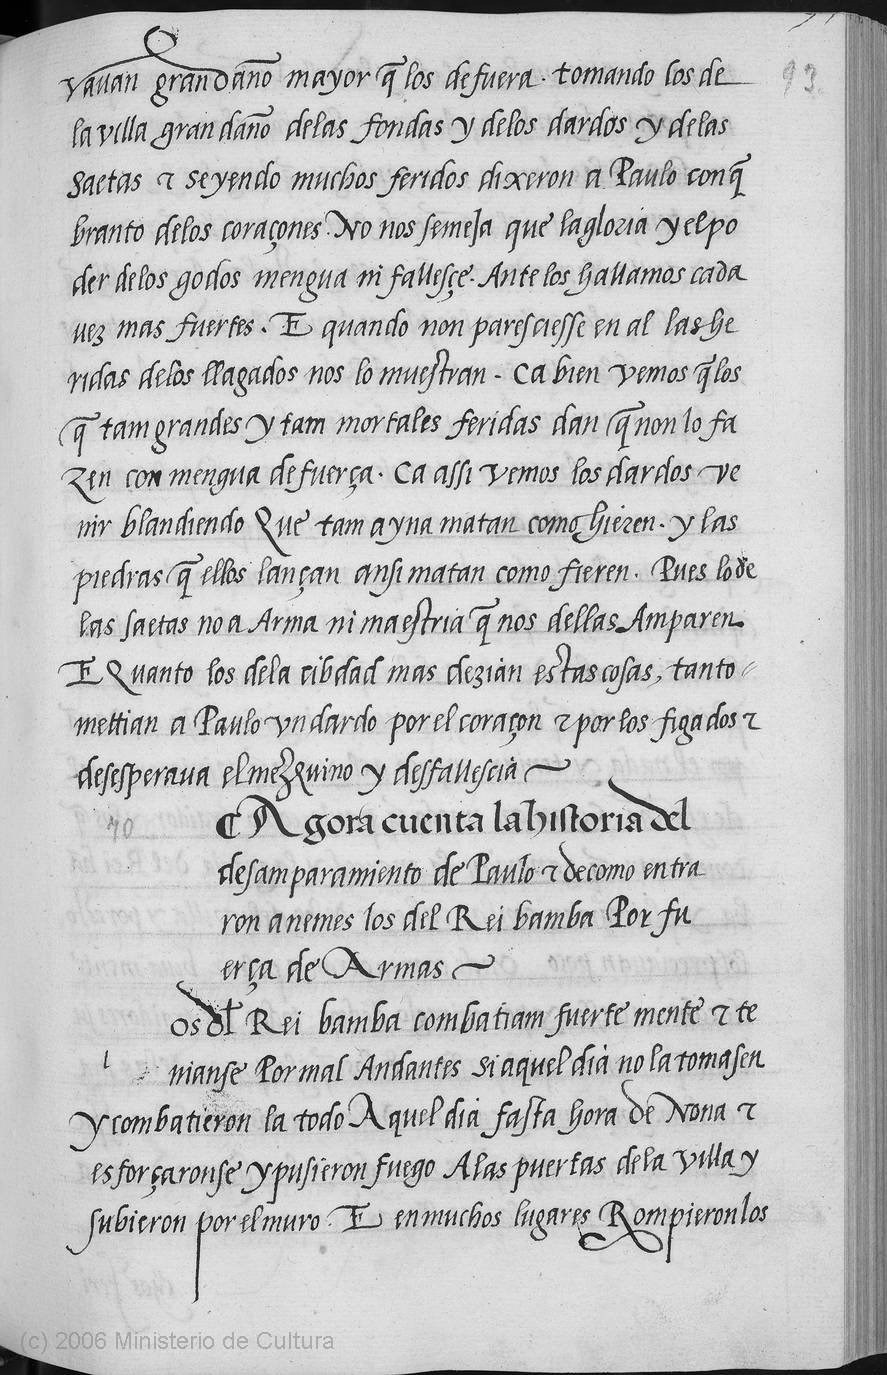 93
vauan gran daño mayor q̃ los de fuera. tomando los de
la villa gran daño delas fondas y delos dardos y delas
Saetas ⁊ seyendo muchos feridos dixeron a Paulo con q̃
branto delos coraçones. No nos semeja que la gloria y el po
der delos godos mengua ni fallesçe. Ante los hallamos cada
uez mas fuertes. E quando non paresciesse en al las he
ridas delos llagados nos lo muestran. Ca bien vemos q̃ los
q̃ tam grandes y tam mortales feridas dan q̃ non lo fa
zen con mengua de fuerça. Ca assi vemos los dardos ve
nir blandiendo Que tam ayna matan como hieren. y las
piedras q̃ ellos lançan ansi matan como fieren. Pues lo de
las saetas no a Arma ni maestria q̃ nos dellas Amparen
E Quanto los dela cibdad mas dezian estas cosas, tanto
mettian a Paulo vn dardo por el coraçon ⁊ por los figados ⁊
desesperaua el mezquino y desfallescia
70
¶ Agora cuenta la historia del
desamparamiento de Paulo ⁊ de como entra
ron a nemes los del Rei bamba Por fu
erça de Armas
l os dl̃ Rei bamba combatiam fuerte mente ⁊ te
nianse Por mal Andantes si aquel dia no la tomasen
y combatieron la todo Aquel dia fasta hora de Nona ⁊
esforçaronse y pusieron fuego A las puertas dela villa y
subieron por el muro. E en muchos lugares Rompieron los
(c) 2006 Ministerio de Cultura